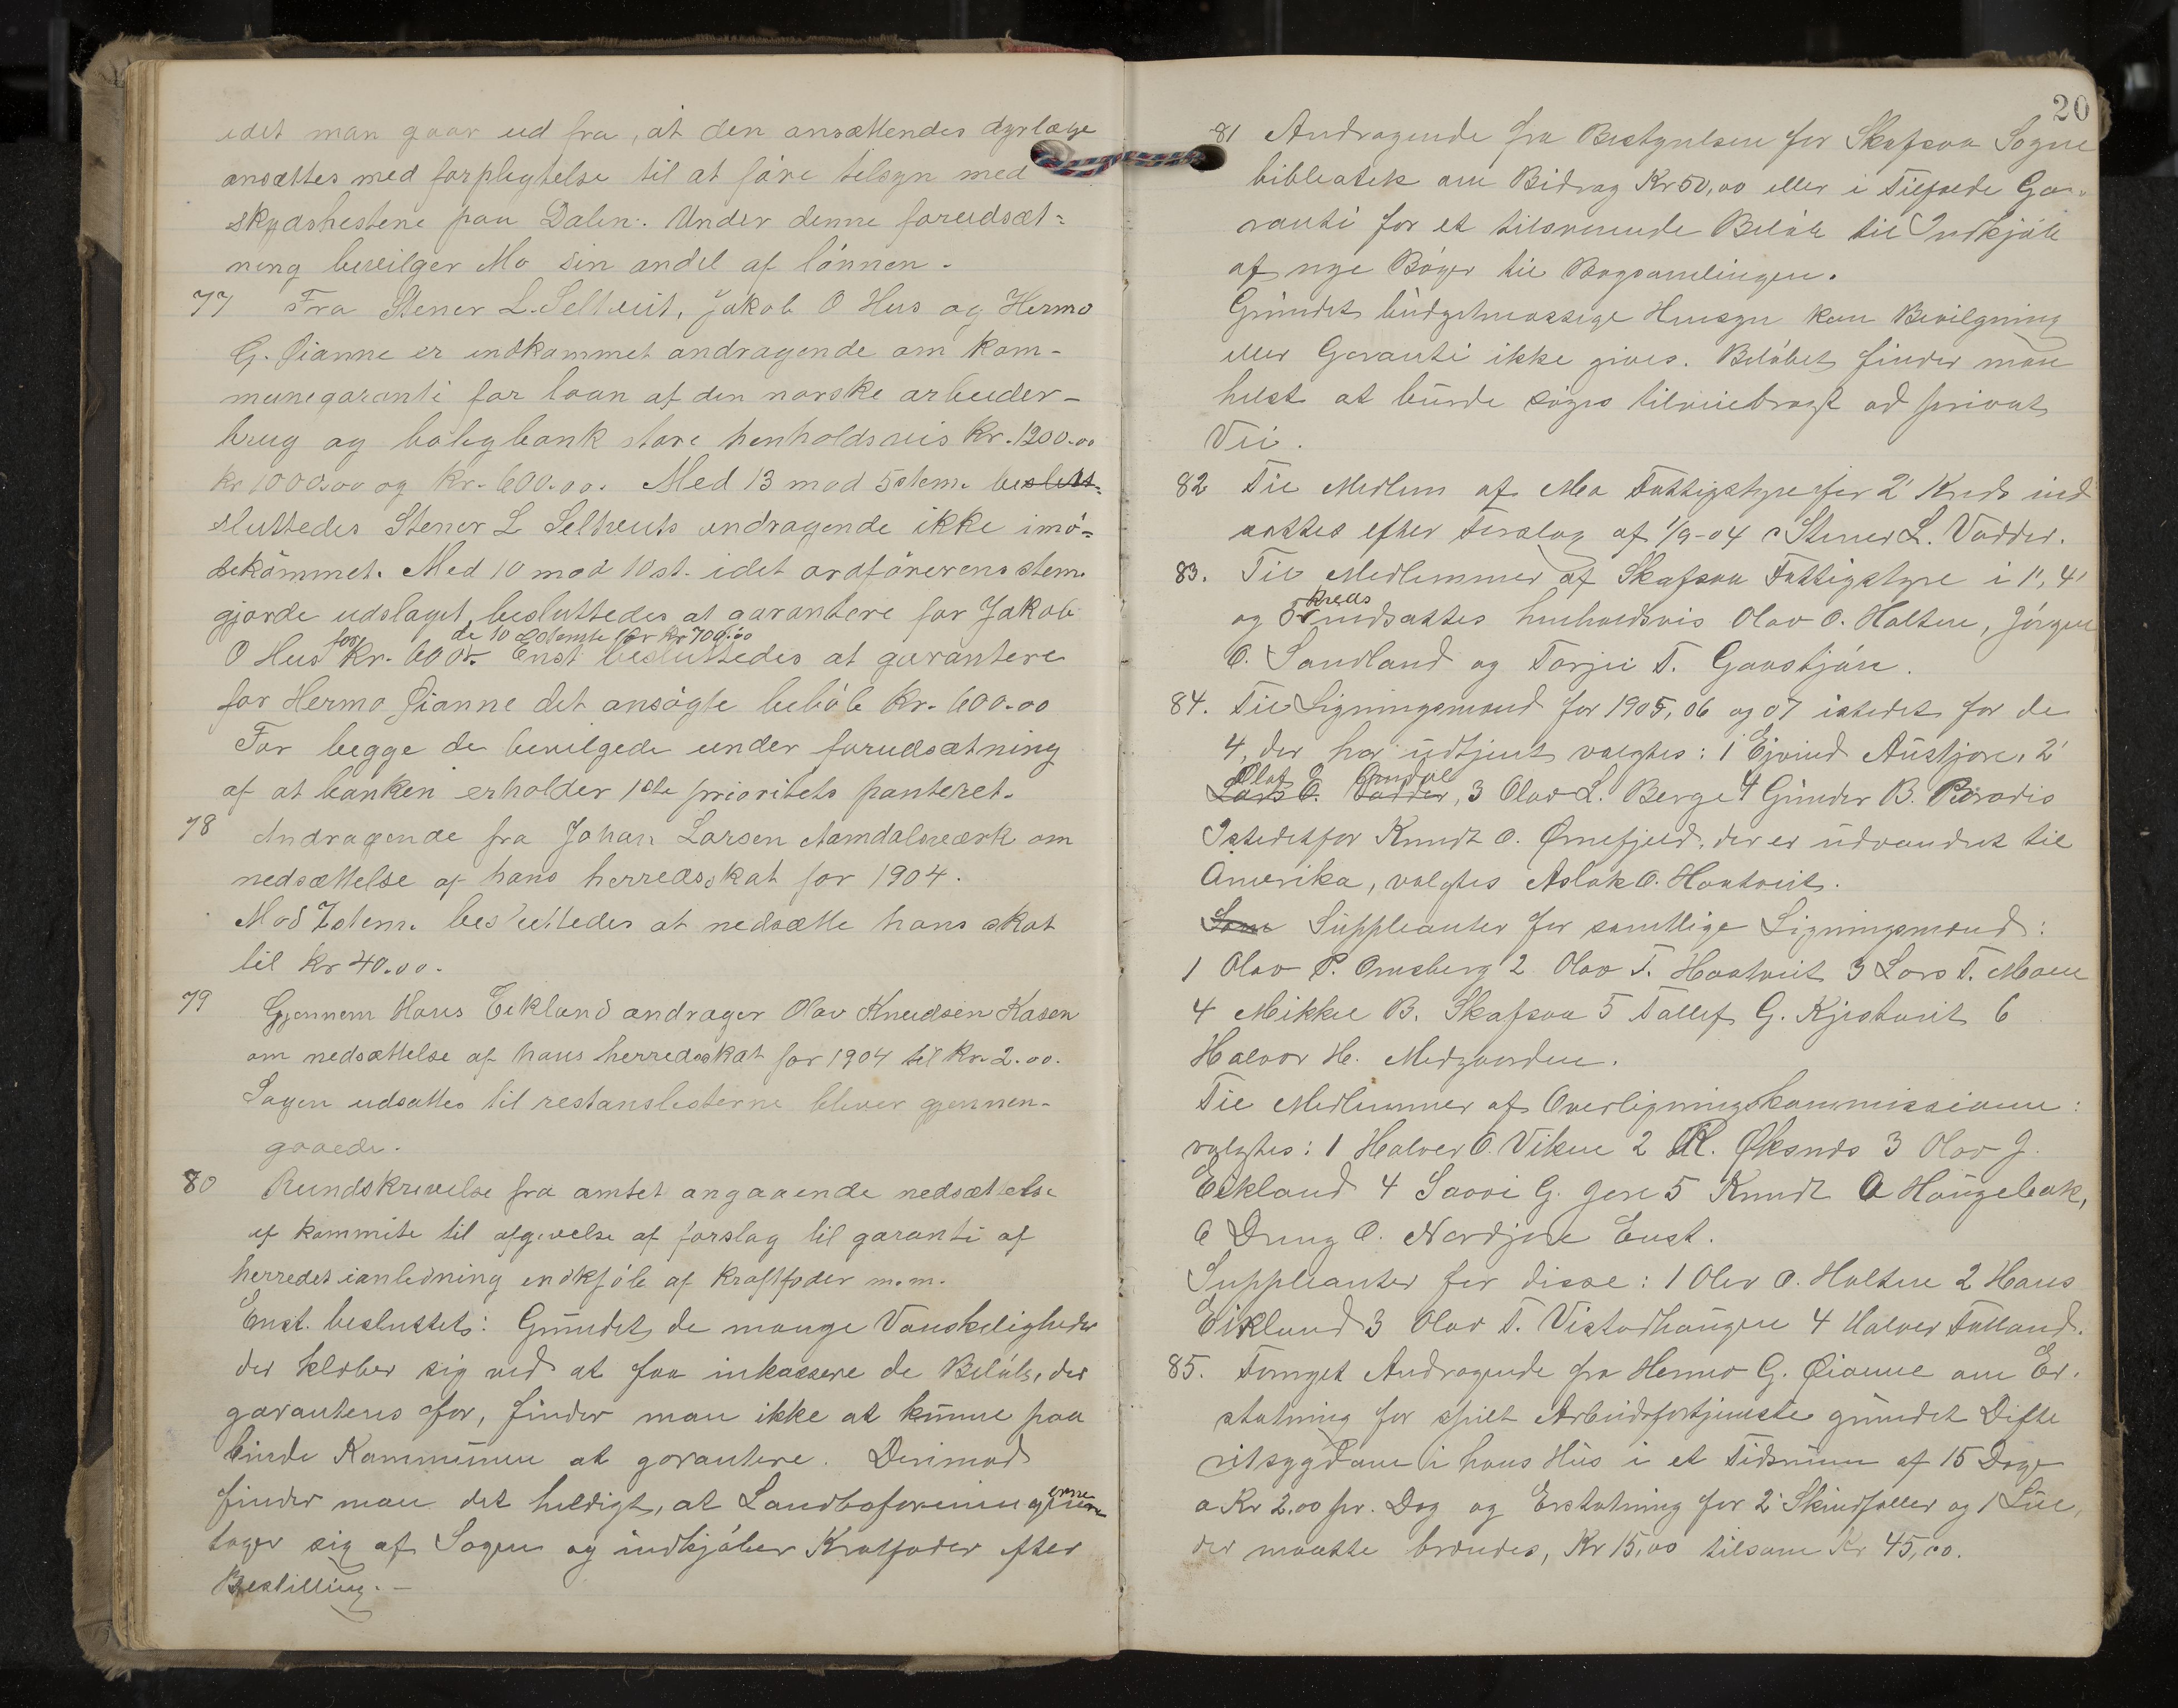 idet man gaar ud fra, at den ansættendes dyrlæge
ansættes med forpligtelse til at føre tilsyn med
skydshestene paa Dalen. Under denne forudsæt=
ning bevilger Mo sin andel af lönnen.
77 Fra Stener L. Seltveit, Jakob O Hus og Hermo
G. Øianne er indkommet andragende om kom-
munegaranti for laan af den norske arbeider-
brug og boligbank store henholdsvis kr. 1200.00
kr 1000.00 og kr. 600.00. Med 13 mod 5 stem. beslutt=
sluttedes Stener L Seltveits andragende ikke imö=
dekömmet. Med 10 mod 10 st. idet ordförerens stem.
gjorde udslaget, besluttedes at garantere for Jakob
for de 10 Istemte for kr 700.00
O Hus kr. 600. Enst besluttedes at garantere
for Hermo Øianne det ansøgte belöb kr. 600.00
For begge de bevilgede under forudsætning
af at banken erholder 1ste prioritets panteret.
78 Andragende fra Johan Larsen Aamdalsværk om
nedsættelse af hans herredsskat for 1904.
Mod 7 stem. besluttedes at nedsætte hans skat
til kr 40.00.
79 Gjennem Hans Eikland andrager Olav Knudsen Kasen
om nedsættelse af hans herredsskat for 1904 til kr. 2.00.
Sagen udsattes til restanslisterne bliver gjennem-
gaaede.
80 Rundskrivelse fra amtet angaaende nedsættelse
af kommite til afgivelse af forslag til garanti af
herredet ianledning indkjøb af kraftfoder m.m.
Enst. besluttets: Grundet de mange Vanskeligheder
der klæber sig ved at faa inkassere de Beløb, der
garanteres for, finder man ikke at kunne paa
binde Kommunen at garantere. Derimod
finder man det heldigt, at Landboforeningerne
tager sig af Sagen og indkjøber Kraftfoder efter
Bestilling. –
20
81 Andragende fra Bestyrelsen for Skafsaa Sogne
bibliotek om Bidrag Kr 50,00 eller i Tilfælde Ga-
ranti for et tilsvarende Beløb til Indkjøb
af nye Bøger til Bogsamlingen.
Grundet budgetmæssige Hensyn kan Bevilgning
eller Garanti ikke gives. Beløbet finder man
helst at burde søges tilveiebragt ad privat
Vei.
82 Til Medlem af Mo Fattigstyre for 2' Kreds ind
sattes efter Forslag af 1/9-04 Stener L. Vadder.
83. Til Medlemmer af Skafsaa Fattigstyre i 1', 4'
kreds
og 5' indsattes henholdsvis Olav O. Holten, Jørgen
O. Sandland og Torjei T. Gaastjøn.
84. Til Ligningsmænd for 1905, 06 og 07 istedet for de
4, der har udtjent valgtes: 1 Eivind Austjore, 2'
Olaf E Omdal
Lars O. Vadder, 3 Olav L. Berge 4 Gunder B. Paradis
Istedetfor Knudt O. Ørnefjeld, der er udvandret til
Amerika, valgtes Aslak O. Haatveit.
Som Suppleanter for samtlige Ligningsmænd:
1 Olav P. Omsberg 2 Olav T. Haatveit 3 Lars T. Moen
4 Mikkel B. Skafsaa 5 Tallef G. Kjostveit 6
Halvor H. Midgaarden.
Til Medlemmer af Overligningskommissionen:
valgtes: 1 Halvor O. Viken 2 R. Øksnes 3 Olav J.
Eikland 4 Saavi G. Jore 5 Knudt O Haugebak,
6 Dreng O. Nordjore Enst.
Suppleanter for disse: 1 Olav O. Holten 2 Hans
Eikland 3 Olav T. Vistadhaugen 4 Halvor Fulland.
85. Fornyet Andragende fra Hermo G. Øianne om Er-
statning for spilt Arbeidsfortjeneste grundet Difte
ritsygdom i hans Hus i et Tidsrum af 15 Dage
a Kr 2,00 pr. Dag og Erstatning for 2 Skindfæller og 1 Lue,
der maatte brændes, Kr 15,00 tilsam Kr 45,00.